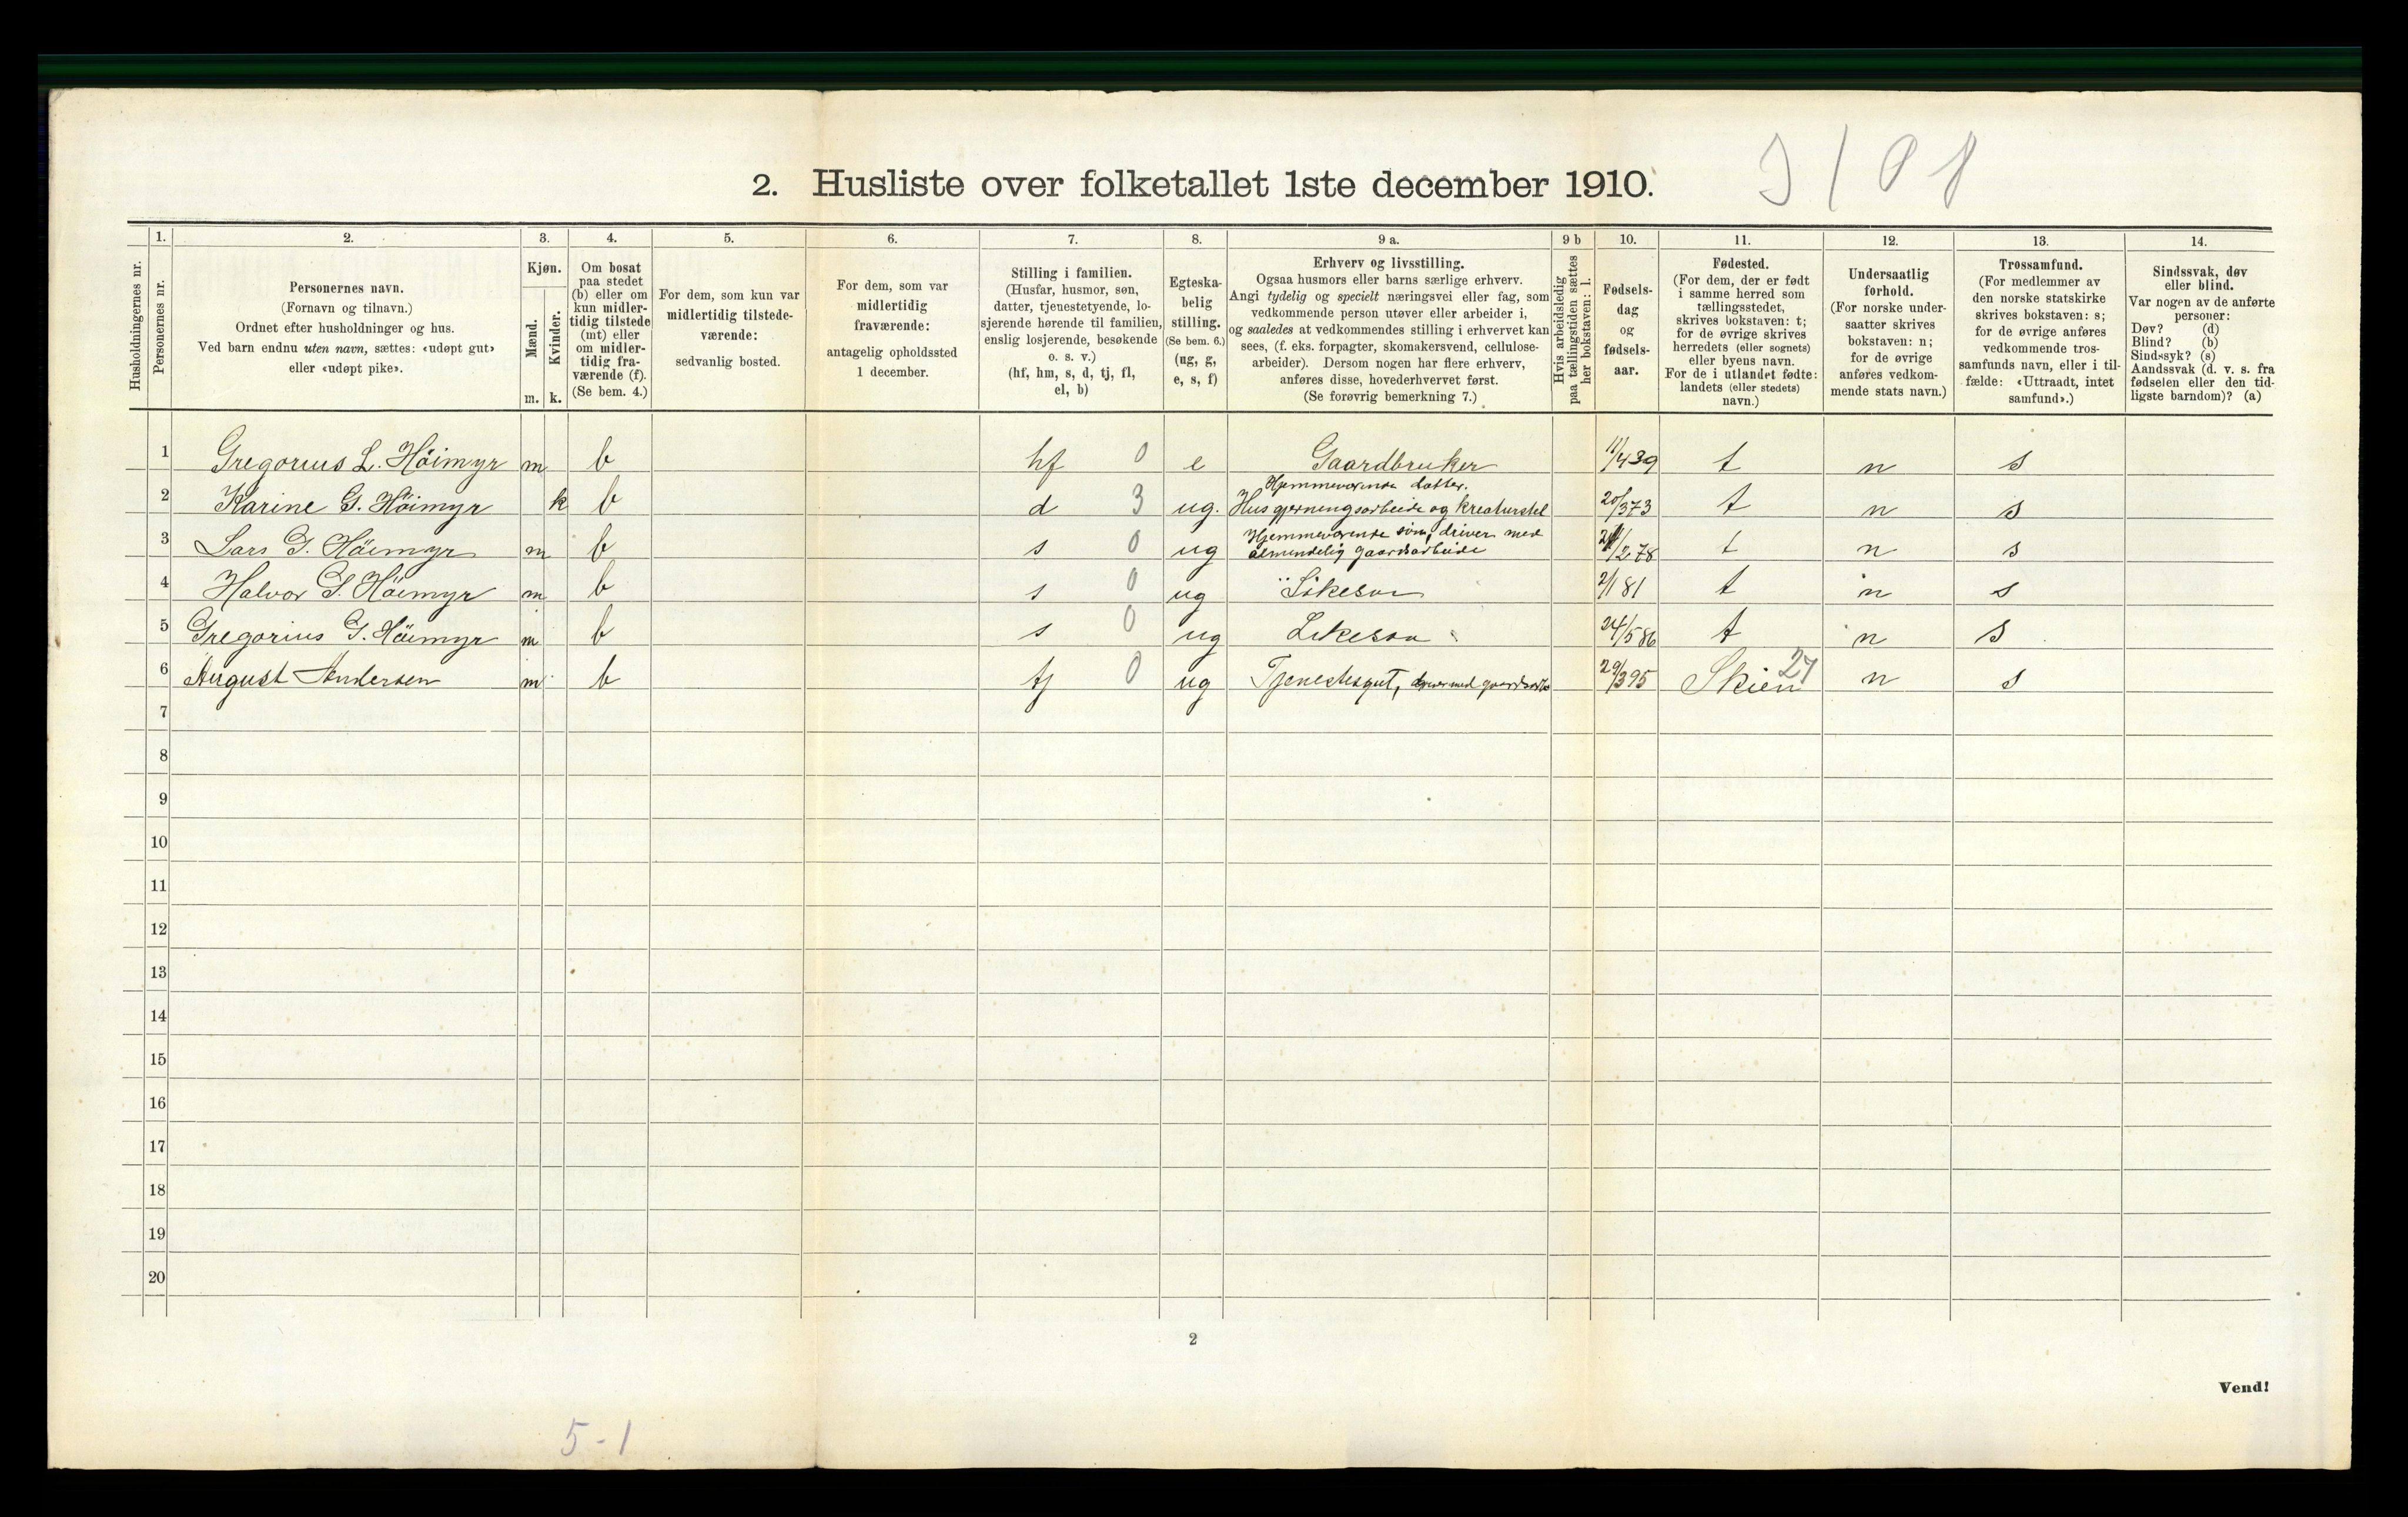 2. Husliste over folketallet 1ste december 1910.
1. 2. 3. 4. 5. 6. 7. 8. 9 a. 9 b 10. 11. 12. 13. 14.
Husholdningernes nr.
Personernes nr.
Personernes navn.
(Fornavn og tilnavn.)
Ordnet efter husholdninger og hus.
Ved barn endnu uten navn, sættes: «udøpt gut»
eller «udøpt pike».
Kjøn.
Mænd.
Kvinder.
m. k.
Om bosat
paa stedet
(b) eller om
kun midler-
tidig tilstede
(mt) eller
om midler-
tidig fra-
værende (f).
(Se bem. 4.)
For dem, som kun var
midlertidig tilstede-
værende:
sedvanlig bosted.
For dem, som var
midlertidig
fraværende:
antagelig opholdssted
1 december.
Stilling i familien.
(Husfar, husmor, søn,
datter, tjenestetyende, lo-
sjerende hørende til familien,
enslig losjerende, besøkende
o. s. v.)
(hf, hm, s, d, tj, fl,
el, b)
Egteska-
belig
stilling.
(Se bem. 6.)
(ug, g,
e, s, f)
Erhverv og livsstilling.
Ogsaa husmors eller barns særlige erhverv.
Angi tydelig og specielt næringsvei eller fag, som
vedkommende person utøver eller arbeider i,
og saaledes at vedkommendes stilling i erhvervet kan
sees, (f. eks. forpagter, skomakersvend, cellulose-
arbeider). Dersom nogen har flere erhverv,
anføres disse, hovederhvervet først.
(Se forøvrig bemerkning 7.)
Hvis arbeidsledig
paa tællingstiden sættes
her bokstaven: l.
Fødsels-
dag
og
fødsels-
aar.
Fødested.
(For dem, der er født
i samme herred som
tællingsstedet,
skrives bokstaven: t;
for de øvrige skrives
herredets (eller sognets)
eller byens navn.
For de i utlandet fødte:
landets (eller stedets)
navn.)
Undersaatlig
forhold.
(For norske under-
saatter skrives
bokstaven: n;
for de øvrige
anføres vedkom-
mende stats navn.)
Trossamfund.
(For medlemmer av
den norske statskirke
skrives bokstaven: s;
for de øvrige anføres
vedkommende tros-
samfunds navn, eller i til-
fælde: «Uttraadt, intet
samfund».)
Sindssvak, døv
eller blind.
Var nogen av de anførte
personer:
Døv? (d)
Blind? (b)
Sindssyk? (s)
Aandssvak (d. v. s. fra
fødselen eller den tid-
ligste barndom)? (a)
1 Gregorius L. Höimyr m b hf 0 e Gaardbruker 11/4 39 t n s
Hjemmeværende datter.
2 Karine G. Höimyr k b d 3 ug. Husgjerningsarbeide og kreaturstel 20/3 73 t n s
Hjemmeværende søn, driver med
3 Lars G. Höimyr m b s 0 ug almindelig gaardsarbeide 2 78 t n s
4 Halvor G. Höimyr m b s 0 ug Likesaa 2/1 81 t n s
5 Gregorius G. Höimyr m b s 0 ug Likesaa 24/5 86 t n s
6 August Andersen m b tj 0 ug Tjenestegut, 29/3 95 Skien 27 n s
7
8
9
10
11
12
13
14
15
16
17
18
19
20
2
Vend!
5-1